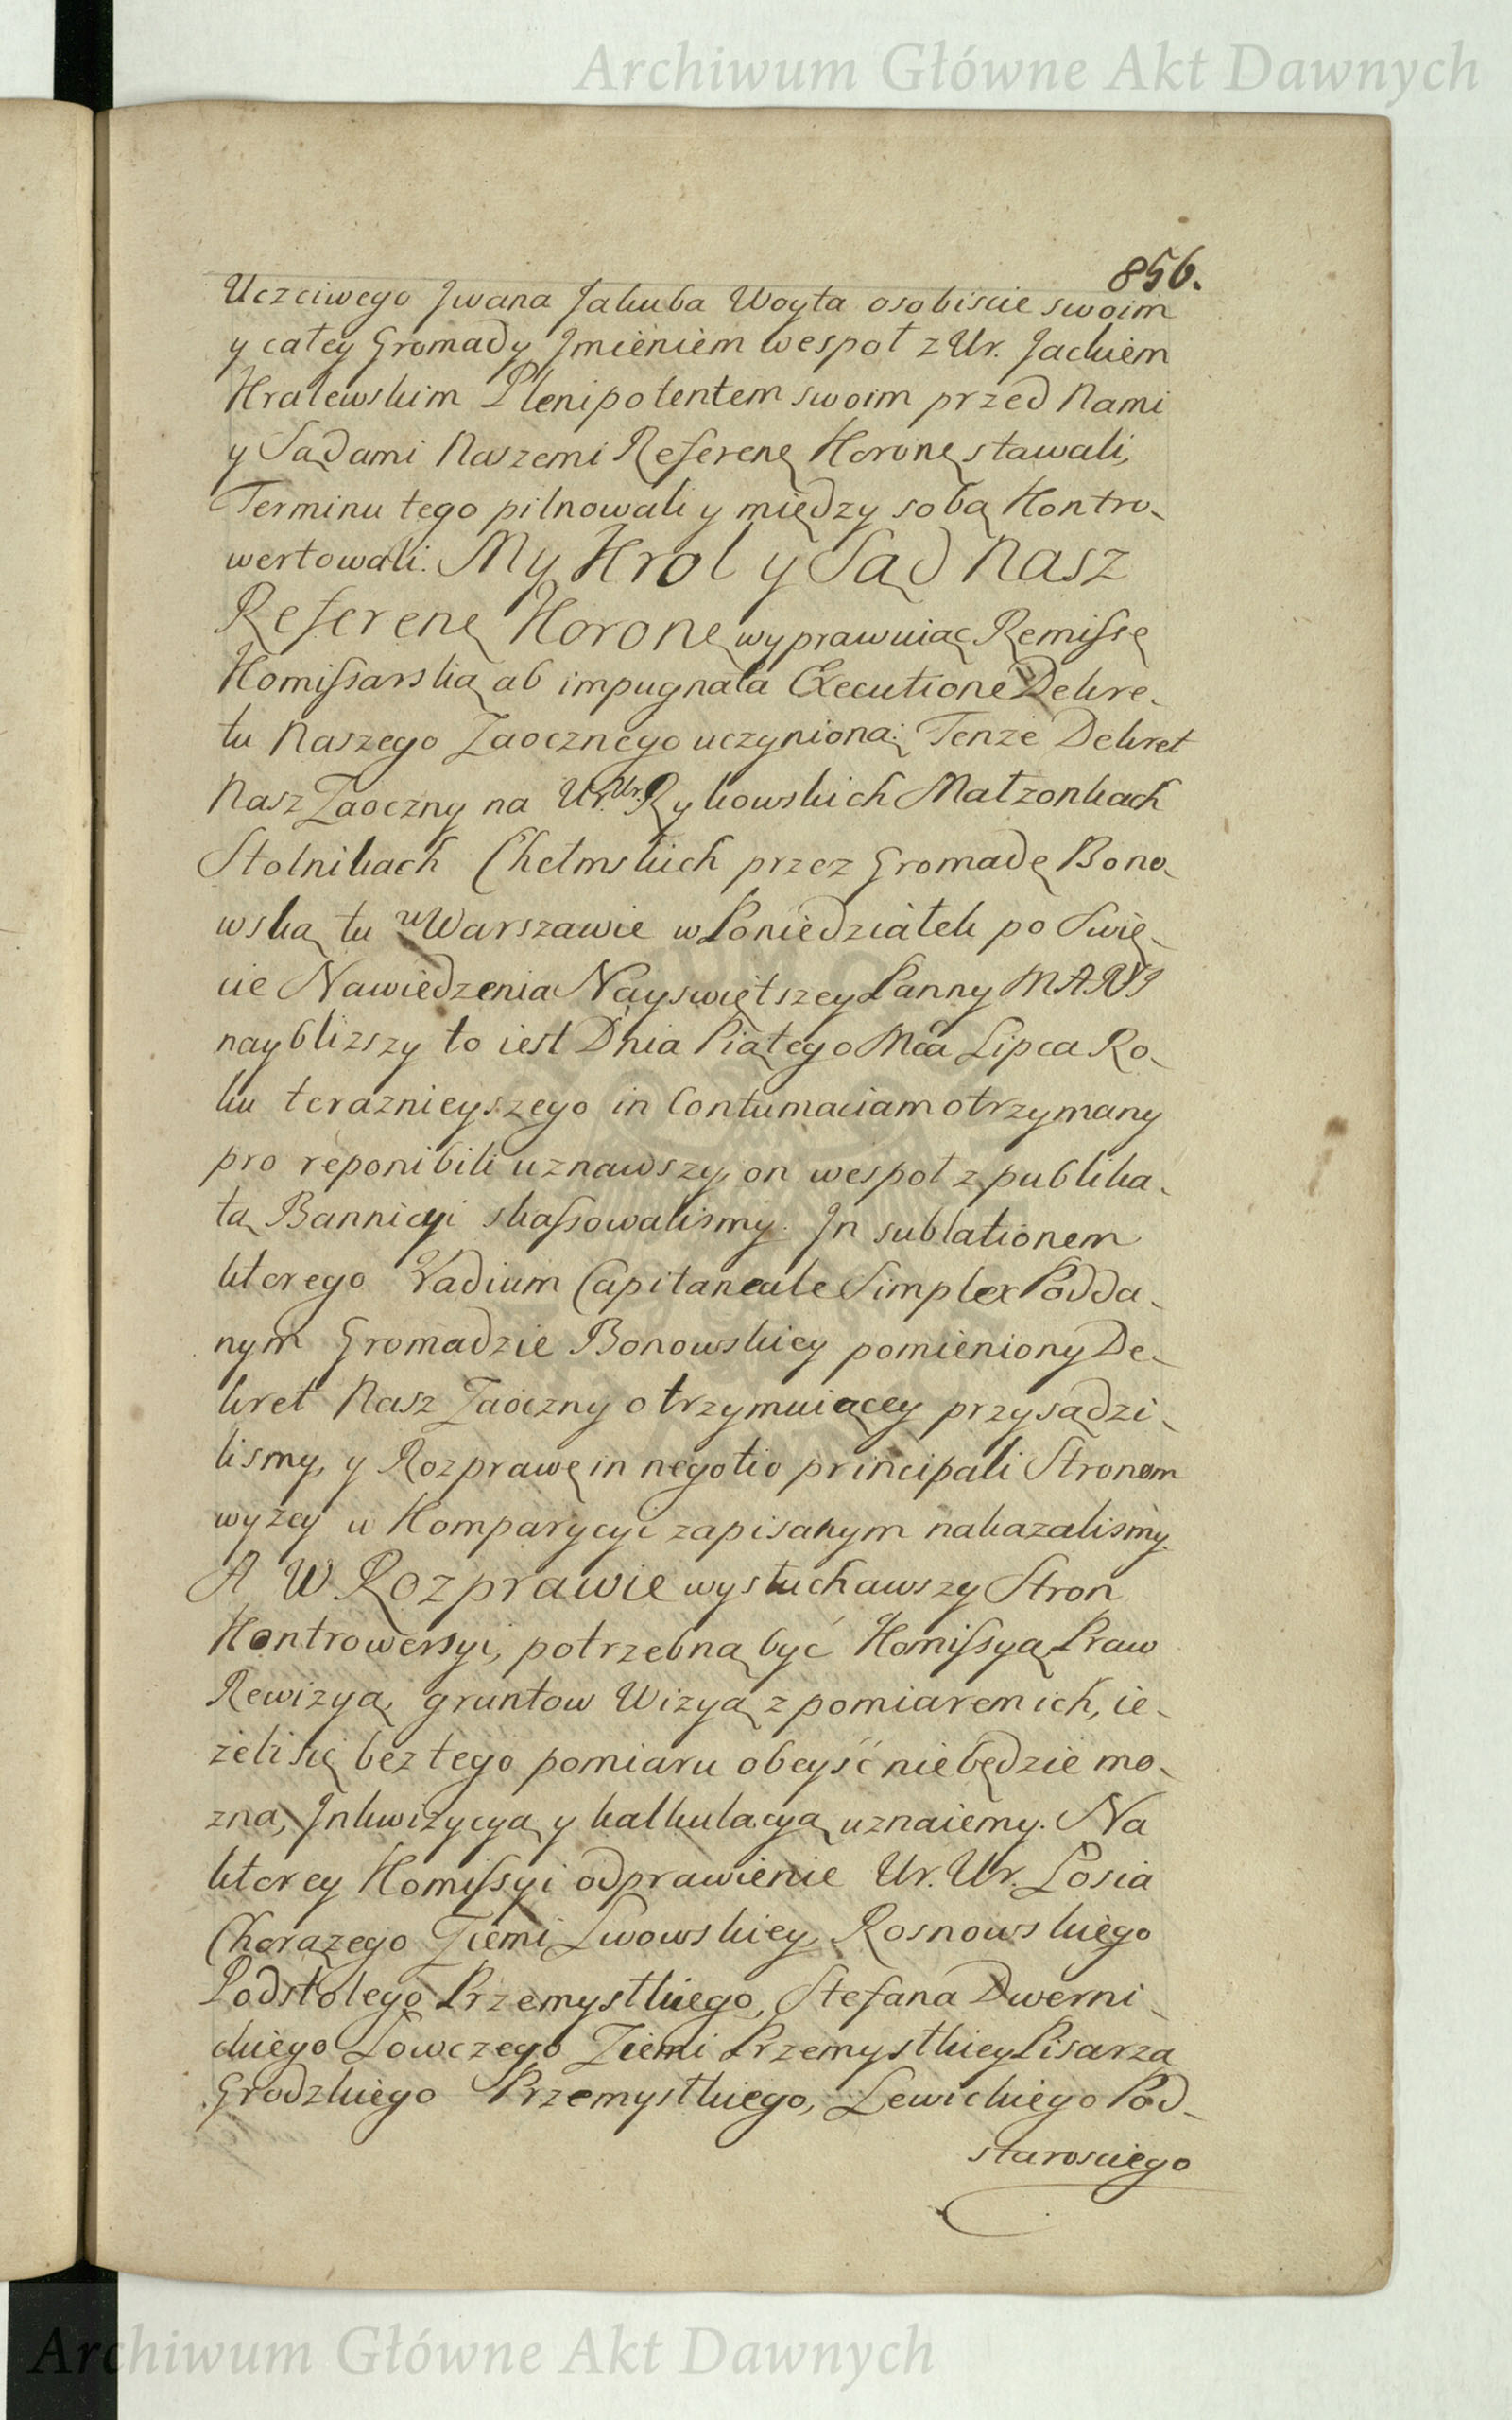 Archiwum Główne Akt Dawnych
856.
Uczciwego Jwana Jakuba Woyta osobiscie swoim
y całey Gromady Jmieniem wespoł z Ur. Jackiem
Kralewskim Plenipotentem swoim przed Nami
y Sądami Naszemi Referenę Koronę stawali,
Terminu tego pilnowali y między sobą Kontro-
wertowali. My Krol y Sąd Nasz
Referenę Koronę wyprawuiąc Remissę
Komissarską ab impugnata Executione Dekre-
tu Naszego Zaocznego uczynioną; Tenże Dekret
Nasz Zaoczny na Ur. Ur. Rykowskich Małzonkach
Stolnikach Chełmskich przez Gromadę Bono-
wską tu w Warszawie w Poniedziałek po Swię-
cie Nawiedzenia Nayswiętszey Panny MARYI
nayblizszy to iest Dnia Piątego Mca Lipca Ro-
ku teraznieyszego in Contumaciam otrzymany
pro reponibili uznawszy, on wespoł z publika-
tą Bannicyi skassowalismy. In sublationem
ktorego Vadium Capitaneale Simplex Podda-
nym Gromadzie Bonowskiey pomieniony De-
kret Nasz Zaoczny otrzymuiącey przysądzi-
lismy, y Rozprawę in negotio principali Stronom
wyżey w Komparycyi zapisanym nakazalismy.
A W Rozprawie wysłuchawszy Stron
Kontrowersyi, potrzebną być Komissyą Praw
Rewizyą, gruntow Wizyą z pomiarem ich, ie-
żeli się bez tego pomiaru obeyść nie będzie mo-
zna, Jnkwizycyą y kalkulacyą uznaiemy. Na
ktorey Komissyi odprawienie Ur. Ur. Łosia
Chorążego Ziemi Lwowskiey, Rosnowskiego
Podstolego Przemyslkiego, Stefana Dwerni-
ckiego Łowczego Ziemi Przemyslkiey Pisarza
Grodzkiego Przemyslkiego, Lewickiego Pod-
starosciego
Archiwum Główne Akt Dawnych